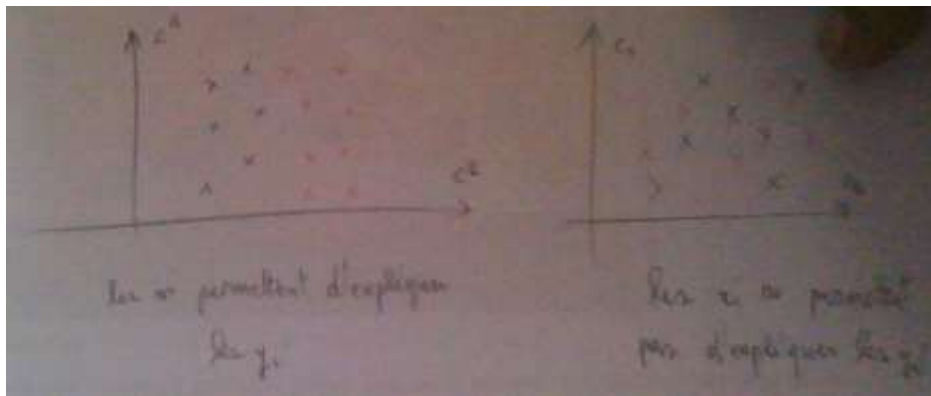 c¹
c²
les x permettent d'expliquer
les yᵢ
c₁
c₂
les x ne permettent
pas d'expliquer les yᵢ